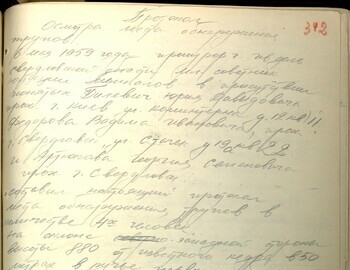 342
Протокол
Осмотра места обнаружения
трупов
6 мая 1959 года прокурор г. Ивдель
свердловской области мл советник
юстиции Темпалов в присутствии
понятых Юрия Давидовича
прож. г. Киев ул. д 12 кв 11
Федорова Вадима Ивановича, прож.
г. Свердловск ул. д 19 кв 22
и Артюхова Георгия Семеновича
прож г. Свердловск
составил настоящий протокол
места обнаружения трупов в
количестве 4х человек
на склоне западной стороны
высоты 880 от известного кедра в 50
метрах в ручье